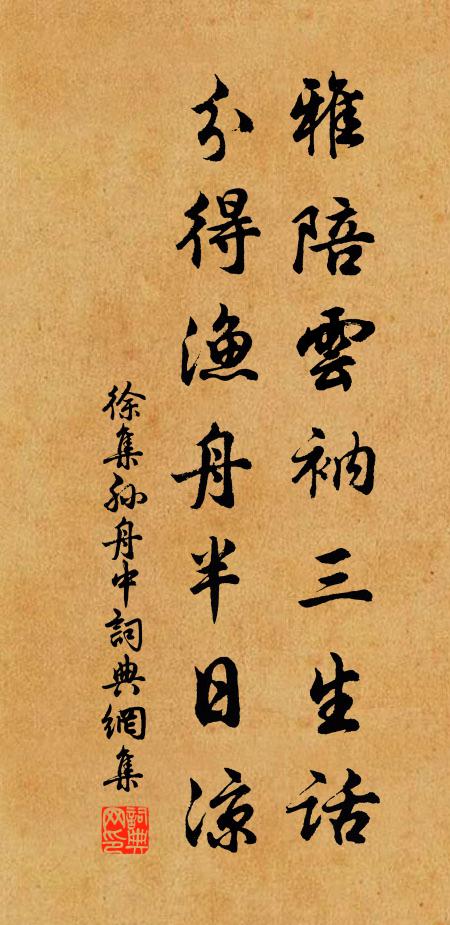 雅陪雲衲三生話
分得漁舟半日涼
徐集孫舟中詞典網集
詞典網印